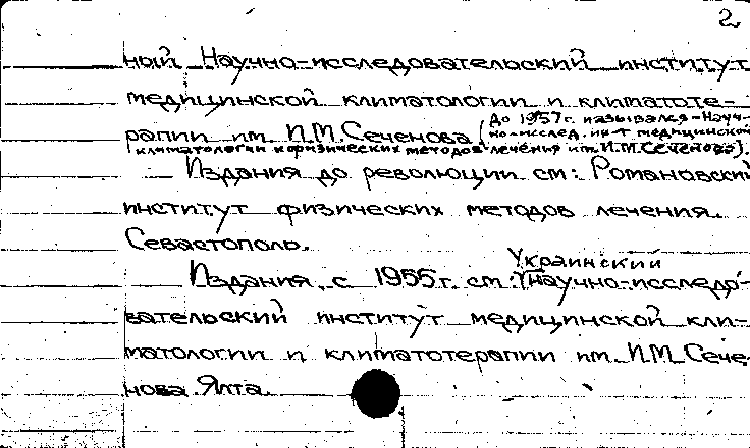 2
ный Научно-исследовательский институт
медицинской климатологии и климатоте-
рапии им. И.М. Сеченова (до 1957 г. назывался - Науч-
но-исслед. ин-т медицинской
климатологии и физических методов лечения им. И.М. Сеченова).
Издания до революции см: Романовский
институт физических методов лечения.
Севастополь.
Издания с 1955 г. см: Украинский научно-исследо-
вательский институт медицинской кли-
матологии и климатотерапии им. И.М. Сече-
нова. Ялта.